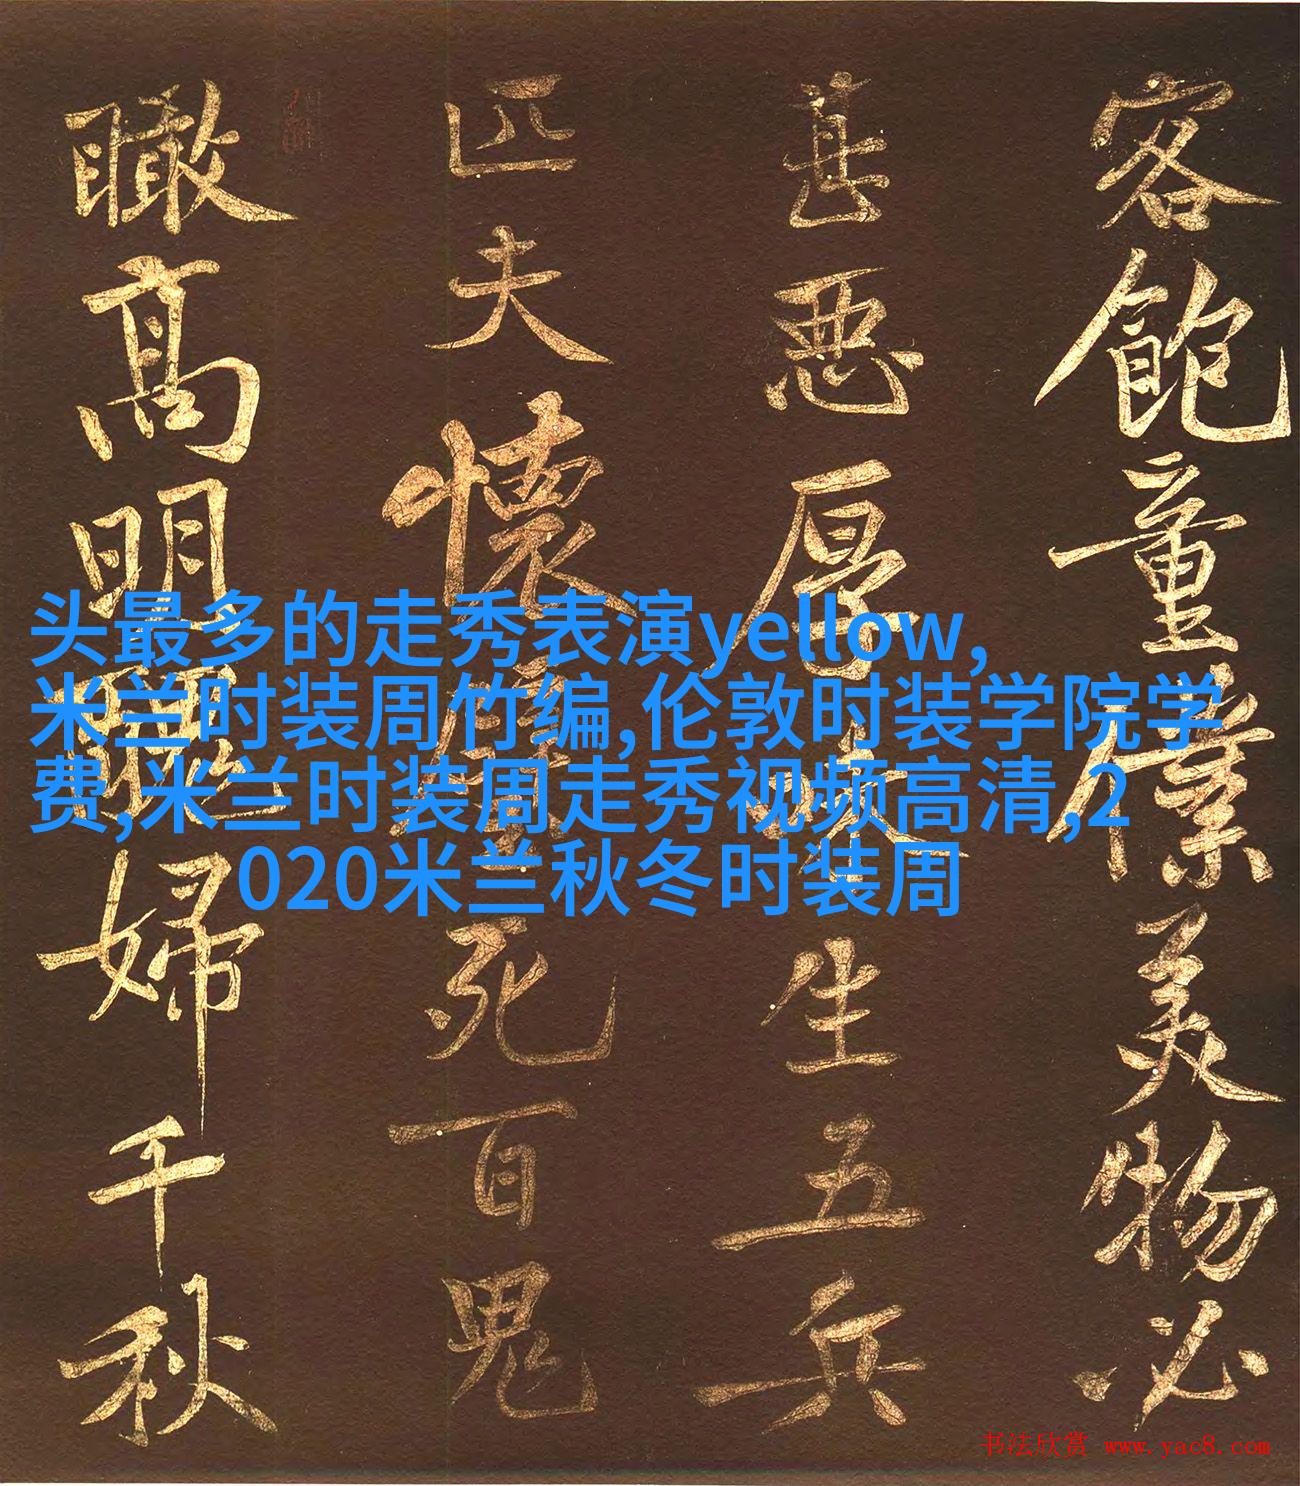 客飽童僕美物必
甚惡厚味生五兵
匹夫懷死百鬼
瞰高明婦千秋
头最多的走秀表演yellow,
米兰时装周竹编,伦敦时装学院学
费,米兰时装周走秀视频高清,2
020米兰秋冬时装周
书法欣赏 www.yac8.com